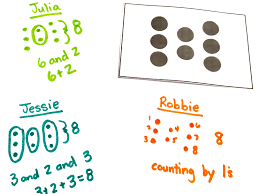 Julia
8
6 and 2
6+2
Jessie
8
3 and 2 and 3
3+2+3=8
Robbie
1 4 6
2 7
3 5 8
8
counting by 1's